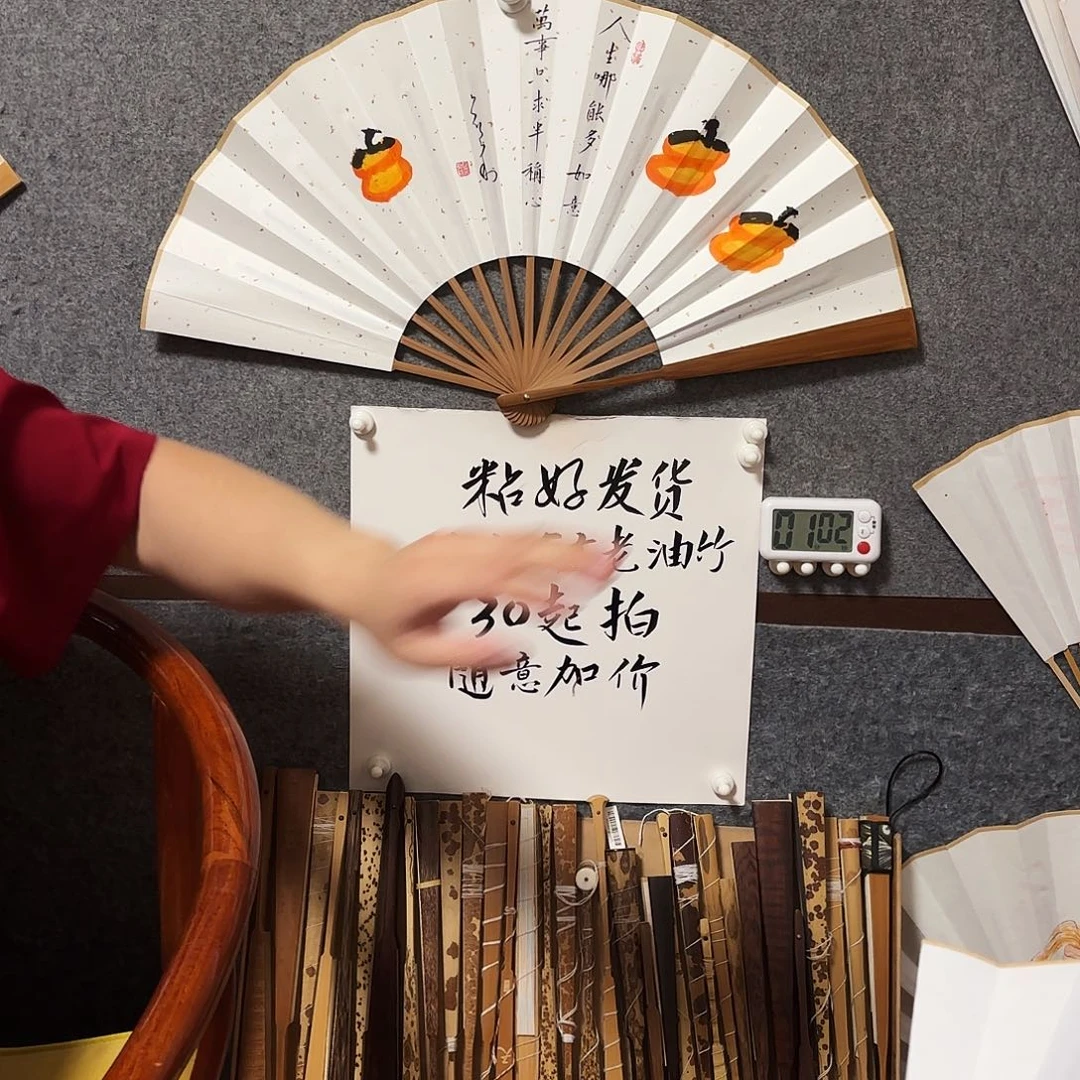 人生哪能多如意
萬事只求半稱心
粘好发货
老油竹
30起拍
随意加价
0102